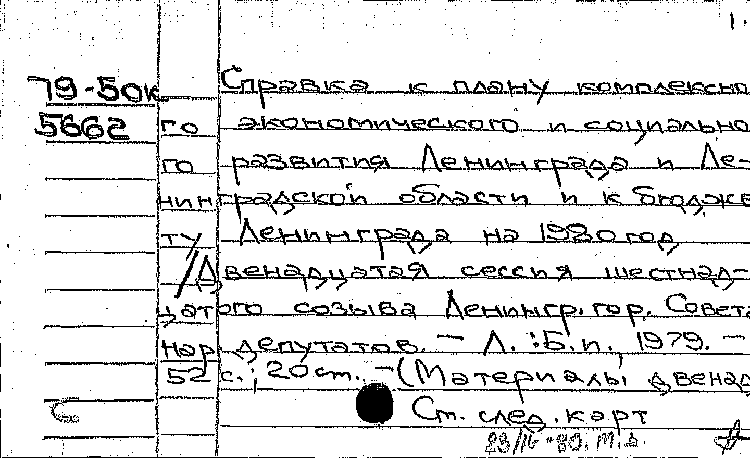 1.
79-50к Справка к плану комплексно
5662 го экономического и социально
го развития Ленинграда и Ле-
нинградской области и к бюдже
ту Ленинграда на 1980 год
/Двенадцатая сессия шестнад-
цатого созыва Ленингр. гор. Совета
нар. депутатов. – Л. : Б.и., 1979. –
52 с.; 20 ст. – (Материалы двенад
См. след. карт